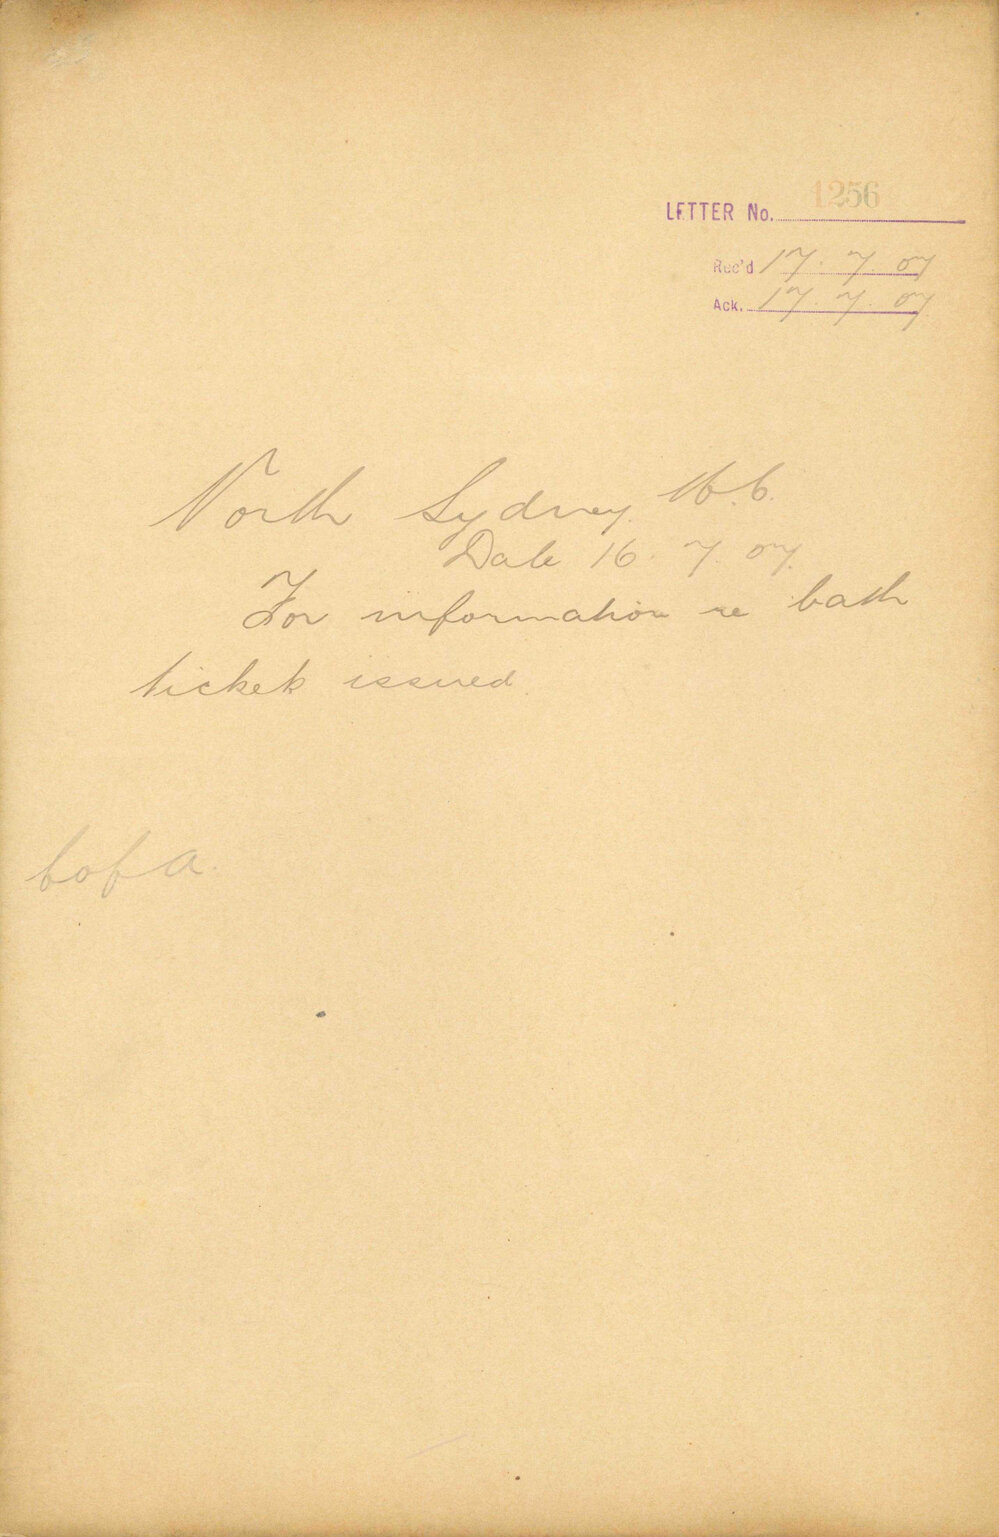 LETTER No. 1256
Rec'd 17. 7. 07
Ack. 17. 7. 07
North Sydney M.C.
Date 16. 7. 07.
For information re bath
tickets issued.
C of A.